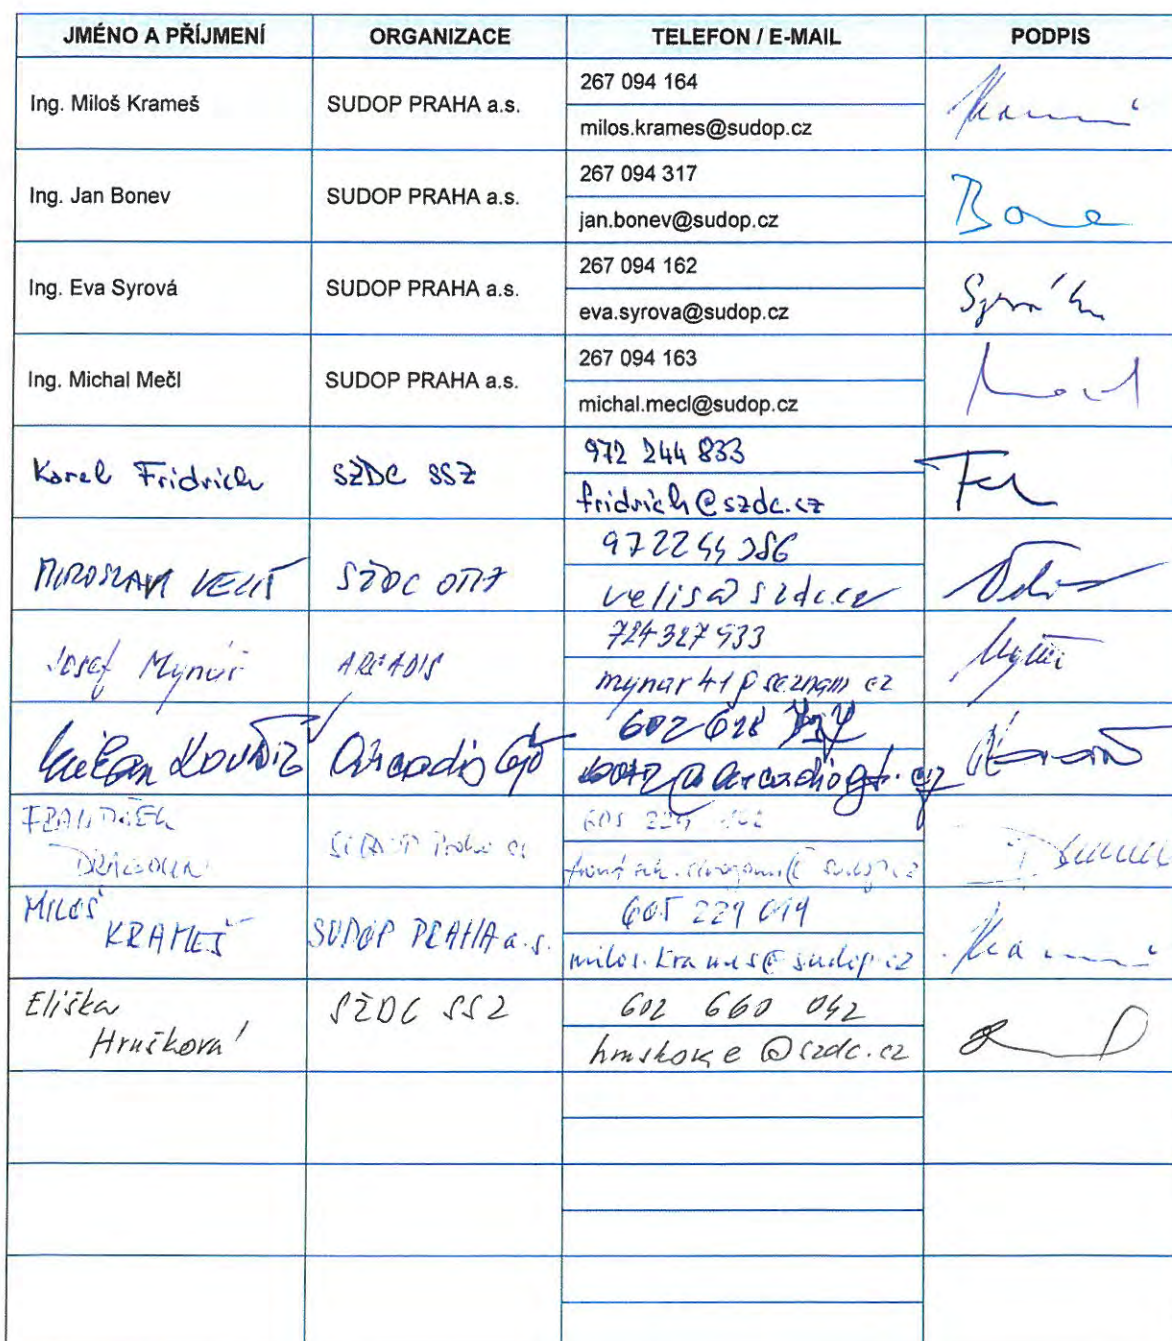 JMÉNO A PŘÍJMENÍ ORGANIZACE TELEFON / E-MAIL PODPIS
Ing. Miloš Krameš SUDOP PRAHA a.s. 267 094 164
milos.krames@sudop.cz
Ing. Jan Bonev SUDOP PRAHA a.s. 267 094 317
jan.bonev@sudop.cz
Ing. Eva Syrová SUDOP PRAHA a.s. 267 094 162
eva.syrova@sudop.cz
Ing. Michal Mečl SUDOP PRAHA a.s. 267 094 163
michal.mecl@sudop.cz
Karel Fridrich SŽDC SSZ 972 244 833
fridrich@szdc.cz
MIROSLAV VELIŠ SŽDC
velis@szdc.cz
Josef Mynář ARCADIS 724 327 933
mynar41@seznam.cz
Milan 602 628
FRANTIŠEK
SUDOP Praha as
MILOŠ
KRAMEŠ SUDOP PRAHA a.s. 605 229 019
milos.krames@sudop.cz
Eliška SŽDC SSZ 602 660 042
Hrušková hruskova e@szdc.cz